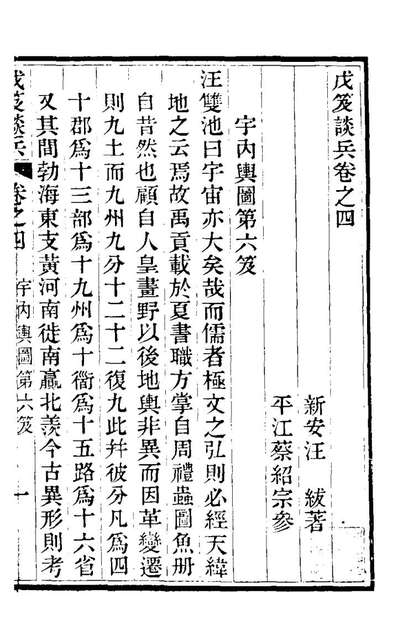 戊笈談兵卷之四
新安汪　紱著
平江蔡紹宗參
宇內輿圖第六笈
汪雙池曰宇宙亦大矣哉而儒者極文之弘則必經天緯
地之云焉故禹貢載於夏書職方掌自周禮蟲圖魚册
自昔然也顧自人皇畫野以後地輿非異而因革變遷
則九土而九州九分十二十二復九此幷彼分凡為四
十郡為十三部為十九州為十衟為十五路為十六省
又其間勃海東支黃河南徙南贏北羨今古異形則考
戊笈談兵 卷之四 宇內輿圖第六笈 一